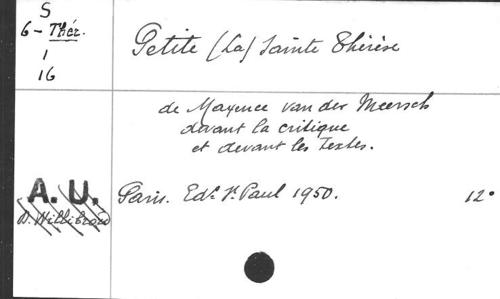 S
6 - Thér.
1
16
Petite (La) Sainte Thérèse
de Maxence van der Meersch
devant la critique
et devant les Textes.
A. U.
D. Willibrord
Paris. Ed. St Paul 1950. 12°